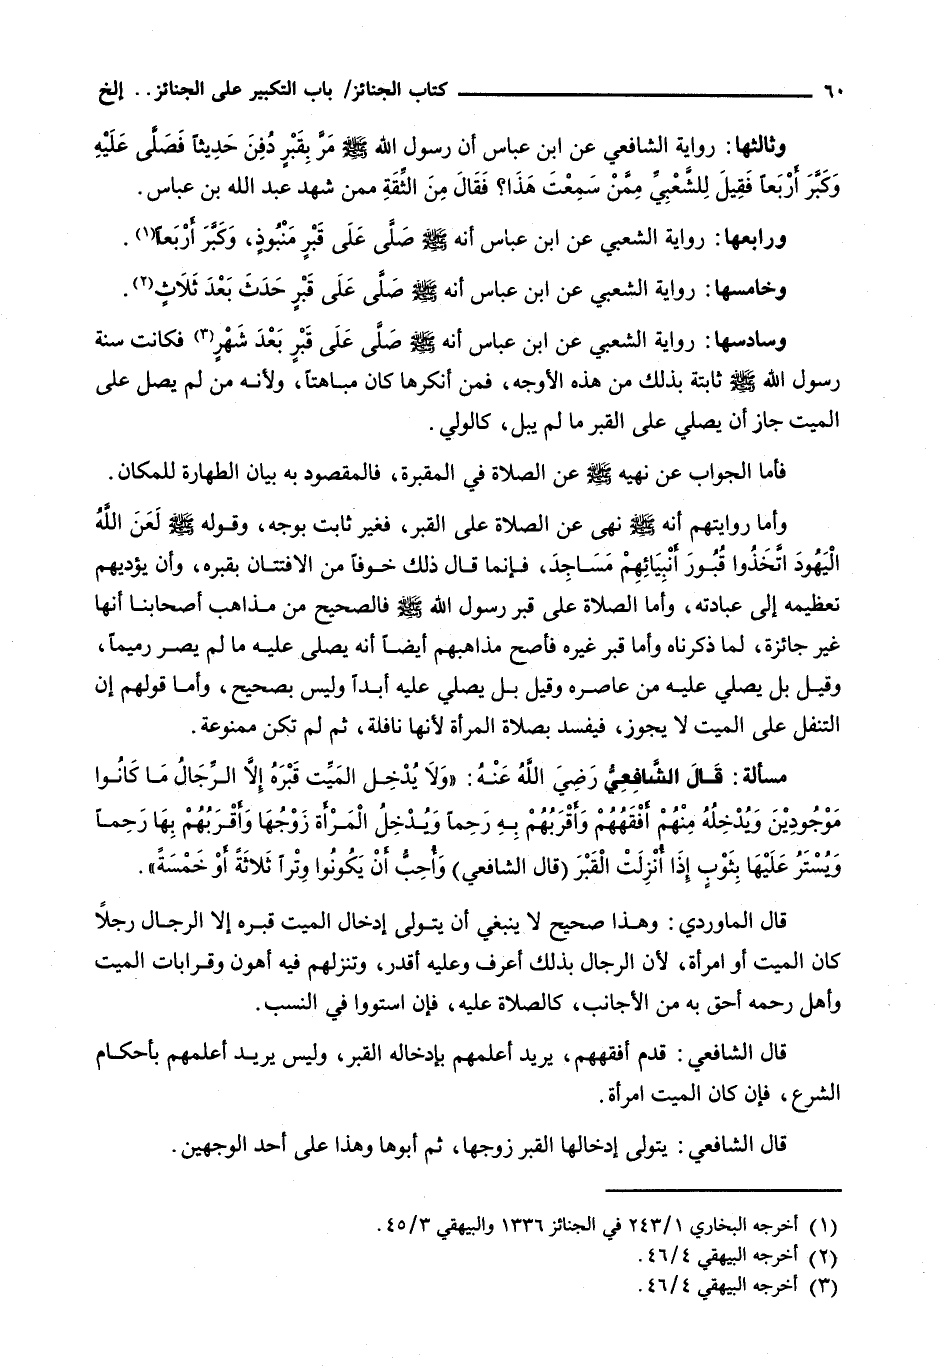 ٦٠ ــــــــــــــــــــ كتاب الجنائز/ باب التكبير على الجنائز . . إلخ
وثالثها: رواية الشافعي عن ابن عباس أن رسول الله ﷺ مَرَّ بِقَبْرٍ دُفِنَ حَدِيثاً فَصَلَّى عَلَيْهِ
وَكَبَّرَ أَرْبَعاً فَقِيلَ لِلشَّعْبِيِّ مِمَّنْ سَمِعْتَ هَذَا؟ فَقَالَ مِنَ الثِّقَةِ ممن شهد عبد الله بن عباس.
ورابعها: رواية الشعبي عن ابن عباس أنه ﷺ صَلَّى عَلَى قَبْرٍ مَنْبُوذٍ، وَكَبَّرَ أَرْبَعاً(١).
وخامسها: رواية الشعبي عن ابن عباس أنه ﷺ صَلَّى عَلَى قَبْرٍ حَدَثَ بَعْدَ ثَلَاثٍ(٢).
وسادسها: رواية الشعبي عن ابن عباس أنه ﷺ صَلَّى عَلَى قَبْرٍ بَعْدَ شَهْرٍ(٣) فكانت سنة
رسول الله ﷺ ثابتة بذلك من هذه الأوجه، فمن أنكرها كان مباهتاً، ولأنه من لم يصل على
الميت جاز أن يصلي على القبر ما لم يبل، كالولي.
فأما الجواب عن نهيه ﷺ عن الصلاة في المقبرة، فالمقصود به بيان الطهارة للمكان.
وأما روايتهم أنه ﷺ نهى عن الصلاة على القبر، فغير ثابت بوجه، وقوله ﷺ لَعَنَ اللَّهُ
الْيَهُودَ اتَّخَذُوا قُبُورَ أَنْبِيَائِهِمْ مَسَاجِدَ، فإنما قال ذلك خوفاً من الافتتان بقبره، وأن يؤديهم
تعظيمه إلى عبادته، وأما الصلاة على قبر رسول الله ﷺ فالصحيح من مذاهب أصحابنا أنها
غير جائزة، لما ذكرناه وأما قبر غيره فأصح مذاهبهم أيضاً أنه يصلى عليه ما لم يصر رميماً،
وقيل بل يصلي عليه من عاصره وقيل بل يصلي عليه أبداً وليس بصحيح، وأما قولهم إن
التنفل على الميت لا يجوز، فيفسد بصلاة المرأة لأنها نافلة، ثم لم تكن ممنوعة.
مسألة: قَالَ الشَّافِعِيُّ رَضِيَ اللَّهُ عَنْهُ: «وَلَا يُدْخِلِ المَيِّت قَبْرَهُ إِلَّا الرِّجَالُ مَا كَانُوا
مَوْجُودِيْنَ وَيُدْخِلُهُ مِنْهُمْ أَفْقَهُهُمْ وَأَقْرَبُهُمْ بِهِ رَحِماً وَيُدْخِلُ الْمَرْأَةَ زَوْجُهَا وَأَقْرَبُهُمْ بِهَا رَحِماً
وَيُسْتَرُ عَلَيْهَا بِثَوْبٍ إِذَا أُنْزِلَتْ الْقَبْرَ (قال الشافعي) وَأُحِبُّ أَنْ يَكُونُوا وِتْراً ثَلَاثَةً أَوْ خَمْسَةً».
قال الماوردي: وهذا صحيح لا ينبغي أن يتولى إدخال الميت قبره إلا الرجال رجلاً
كان الميت أو امرأة، لأن الرجال بذلك أعرف وعليه أقدر، وتنزلهم فيه أهون وقرابات الميت
وأهل رحمه أحق به من الأجانب، كالصلاة عليه، فإن استووا في النسب.
قال الشافعي: قدم أفقههم، يريد أعلمهم بإدخاله القبر، وليس يريد أعلمهم بأحكام
الشرع، فإن كان الميت امرأة.
قال الشافعي: يتولى إدخالها القبر زوجها، ثم أبوها وهذا على أحد الوجهين.
(١) أخرجه البخاري ٢٤٣/١ في الجنائز ١٣٣٦ والبيهقي ٤٥/٣.
(٢) أخرجه البيهقي ٤٦/٤.
(٣) أخرجه البيهقي ٤٦/٤.